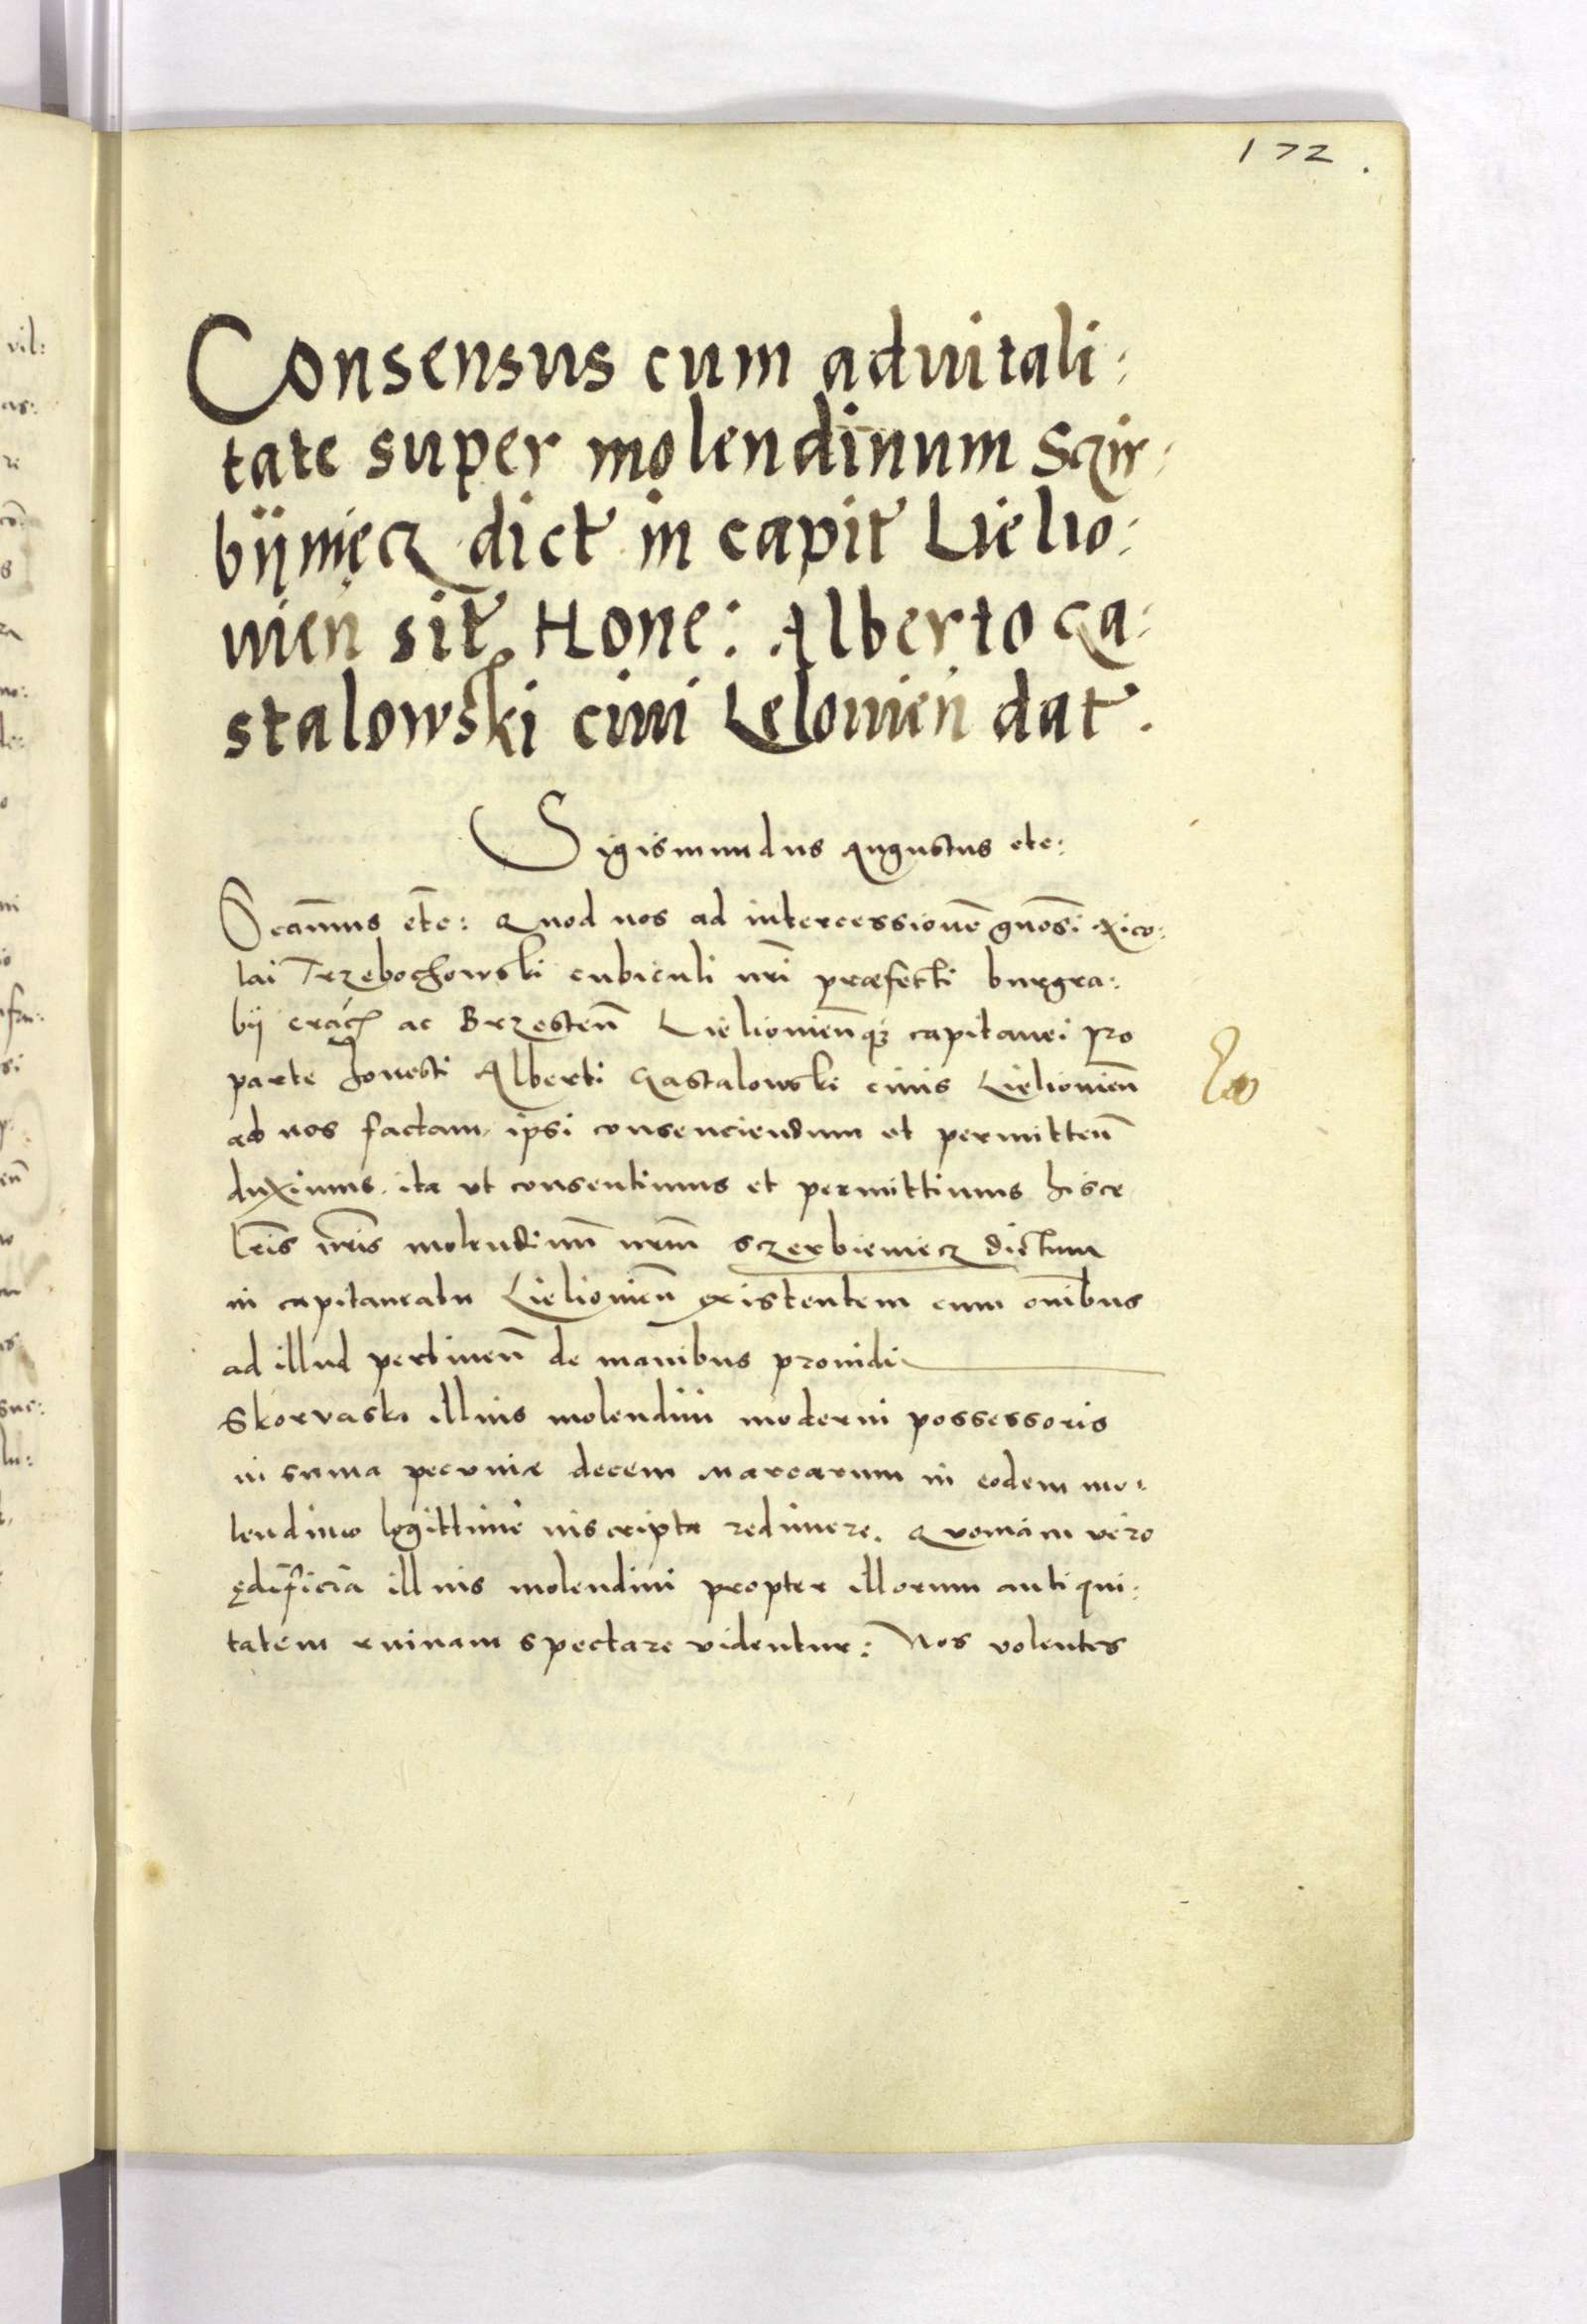 172.
Consensus cum aduitali:
tate super molendinum Sczir:
bijnięcz dict in capit Lielio:
uien̄ sit. Hone: Alberto Ga:
stalowski ciui Lelouien̄ dat.
Sigismundus Augustus etc:
Significamus
etc: Quod nos ad intercessionē gn̄osi Nico:
lai Trzebochowski cubiculi nr̄i præfecti burgra:
bij crac ac Brzesten̄ Lieliouien̄q3 capitanei pro
parte honesti Alberti Gastalowski ciuis Lieliouien̄
ad nos factam, ipsi consenciendum et permitten̄
duximus. ita vt consentimus et permittimus hisce
lr̄is nr̄is molendinū nr̄m Sczerbieniecz dictum
in capitaneatu Lieliouien̄ existentem cum om̄ibus
ad illud pertinen̄ de manibus prouidi
Skorvaska illius molendini moderni possessoris
in suma pecuniæ decem marcarum in eodem mo:
lendino legittime inscripta redimere. Quoniam vero
ędificia illius molendini propter illorum antiqui:
tatem ruinam spectare videntur: Nos volentes